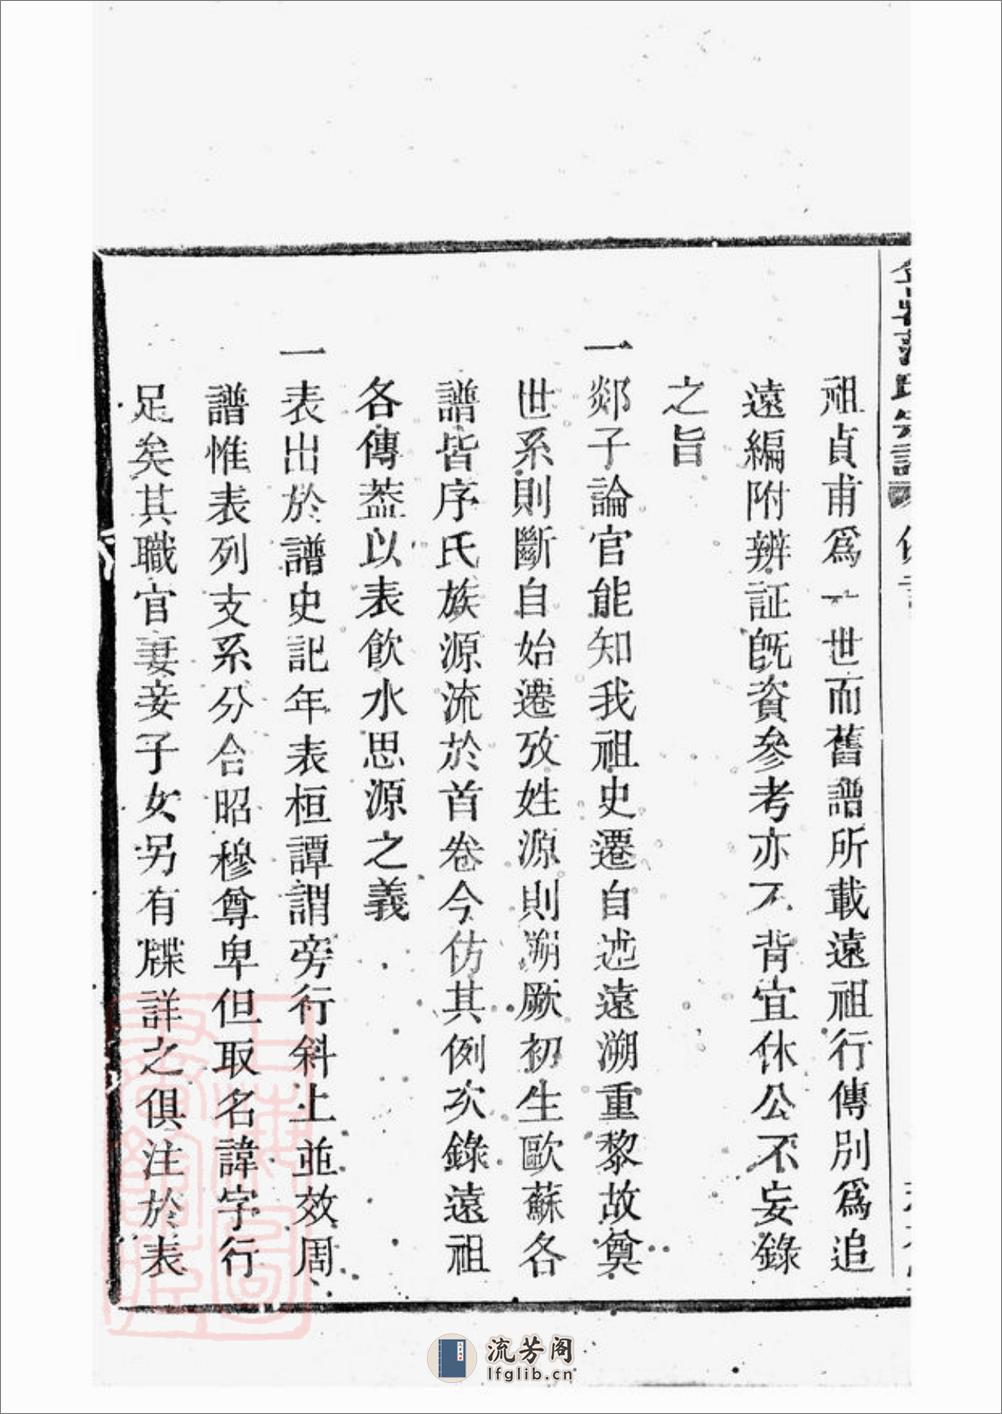 祖貞甫爲一世而舊譜所載遠祖行傳別爲追
遠編附辨証旣資參考亦不背宜休公不妄錄
之旨
一郯子論官能知我祖史遷自述遠溯重黎故奠
世系則斷自始遷攷姓源則溯厥初生歐蘇各
譜皆序氏族源流於首卷今仿其例次錄遠祖
各傳葢以表飮水思源之義
一表出於譜史記年表桓譚謂旁行斜上並效周
譜惟表列支系分合昭穆尊卑但取名諱字行
足矣其職官妻妾子女另有牒詳之俱注於表
流芳阁
lfglib.cn